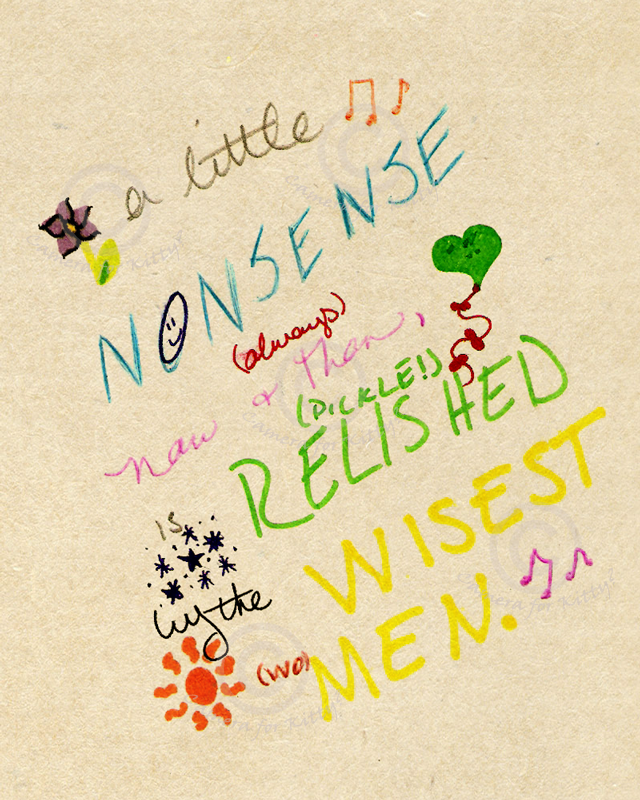 a little
NONSENSE
(always)
now & then,
(PICKLE!)
RELISHED
is
by the
WISEST
(wo)MEN.